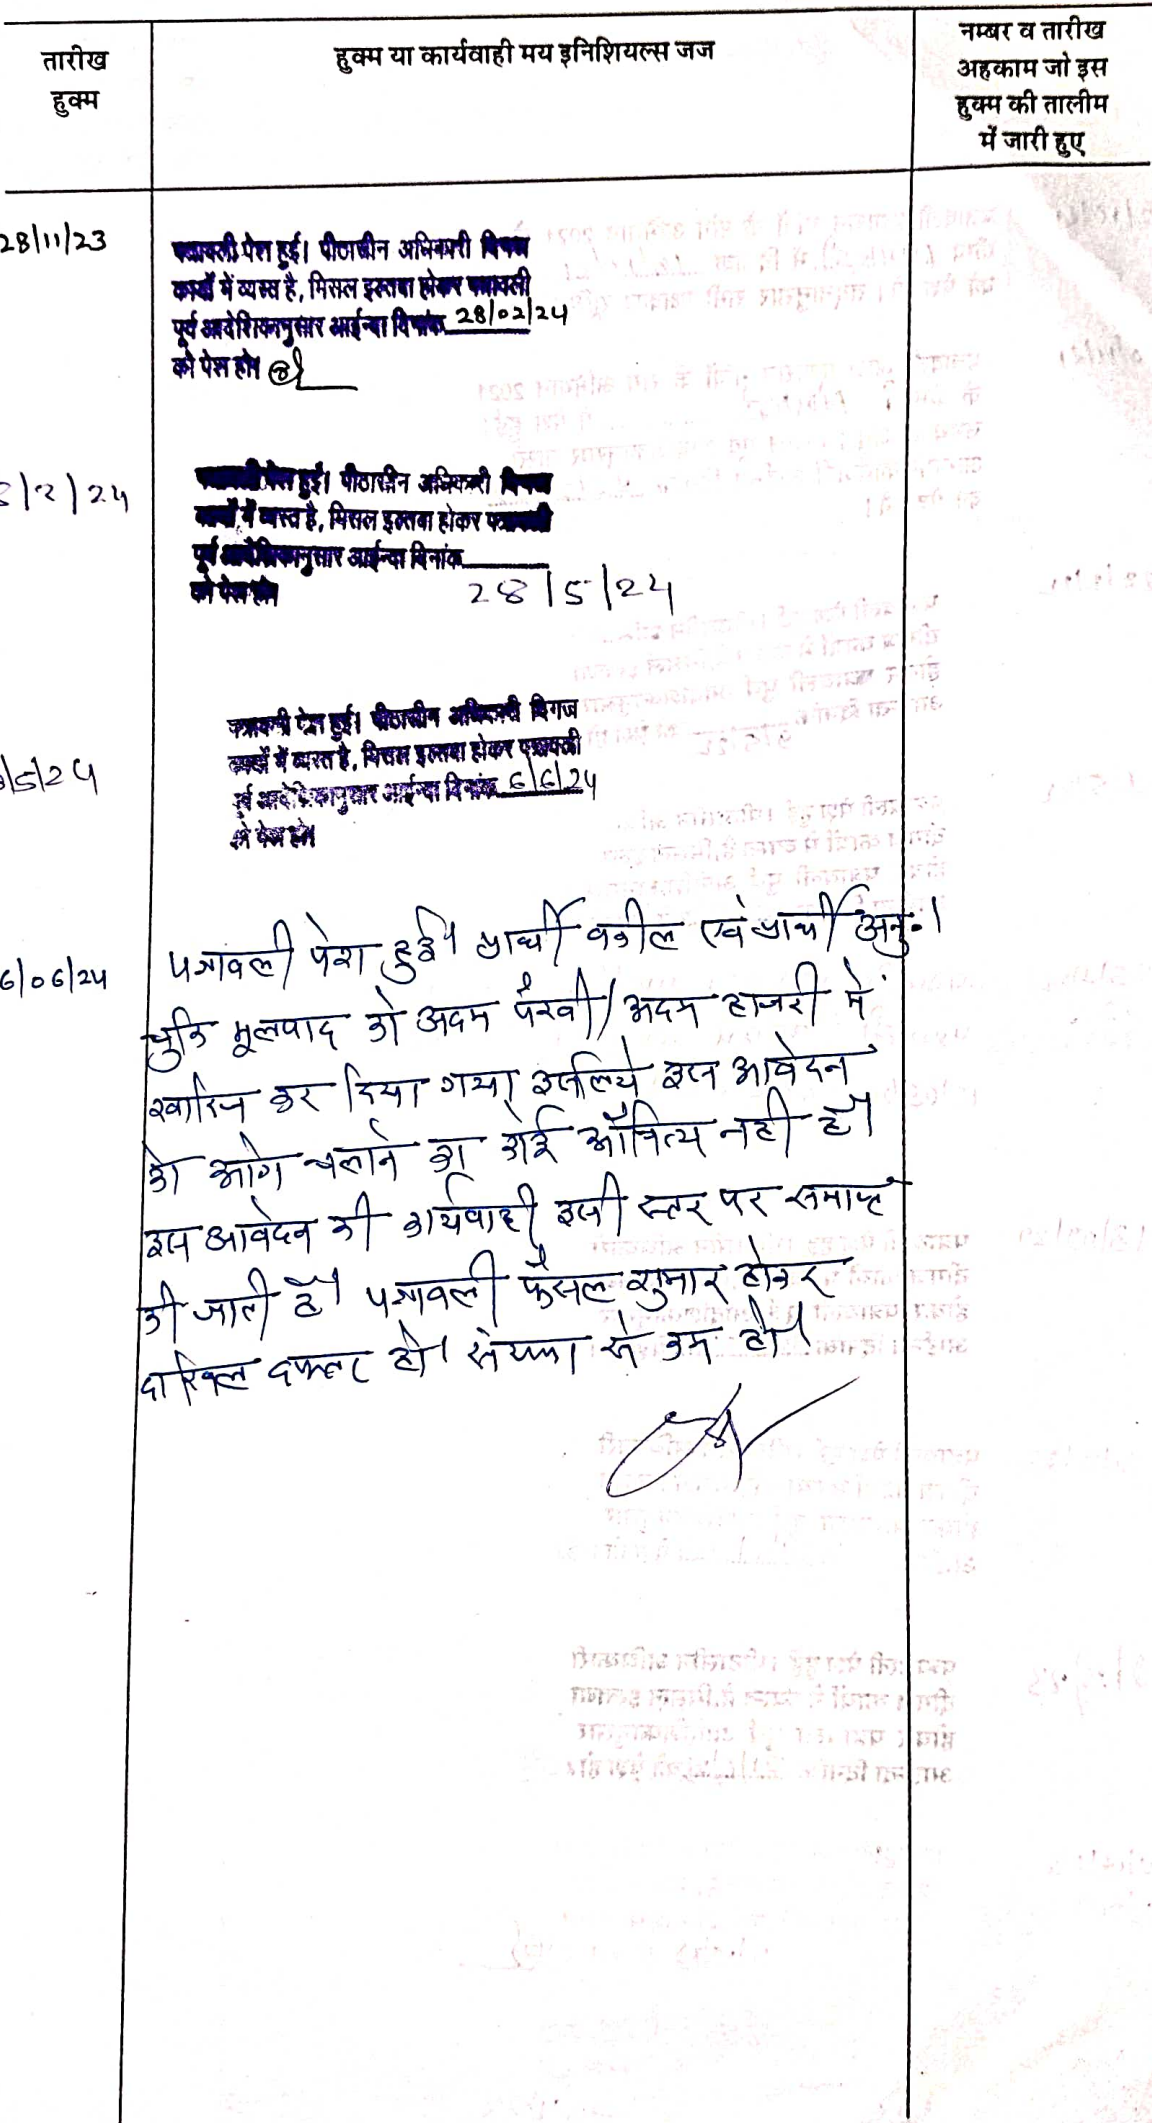 तारीख
हुक्म
हुक्म या कार्यवाही मय इनिशियल्स जज
नम्बर व तारीख
अहकाम जो इस
हुक्म की तालीम
में जारी हुए
28/11/23
पत्रावली पेश हुई। पीठासीन अधिकारी
कार्यों में व्यस्त है, मिसल इल्तवा होकर पत्रावली
पूर्व आदेशिकानुसार आईन्दा दिनांक 28/02/24
को पेश हो।
/2/24
पत्रावली पेश हुई। पीठासीन अधिकारी
कार्यों में व्यस्त है, मिसल इल्तवा होकर पत्रावली
पूर्व आदेशिकानुसार आईन्दा दिनांक
को पेश हो।
28/5/24
/5/24
पत्रावली पेश हुई। पीठासीन अधिकारी
कार्यों में व्यस्त है, मिसल इल्तवा होकर पत्रावली
पूर्व आदेशिकानुसार आईन्दा दिनांक 6/6/24
को पेश हो।
6/06/24
पत्रावली पेश हुई। प्रार्थी वकील एवं प्रार्थी अनु.।
चुकि मूलवाद को अदम पैरवी/अदम हाजरी में
खारिज कर दिया गया इसलिये इस आवेदन
को आगे चलाने का कोई औचित्य नही है।
इस आवेदन की कार्यवाही इसी स्तर पर समाप्त
की जाती है। पत्रावली फैसल शुमार होकर
दाखिल दफ्तर हो। संख्या से कम हो।